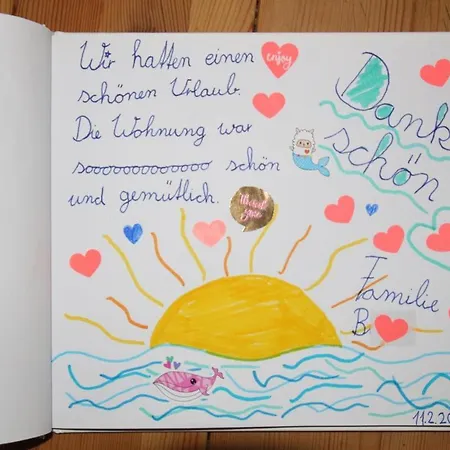 Wir hatten einen
schönen Urlaub.
Die Wohnung war
soooooooooooo schön
und gemütlich.
enjoy
Thank you
Dank
schön
Familie
B
11.2.20